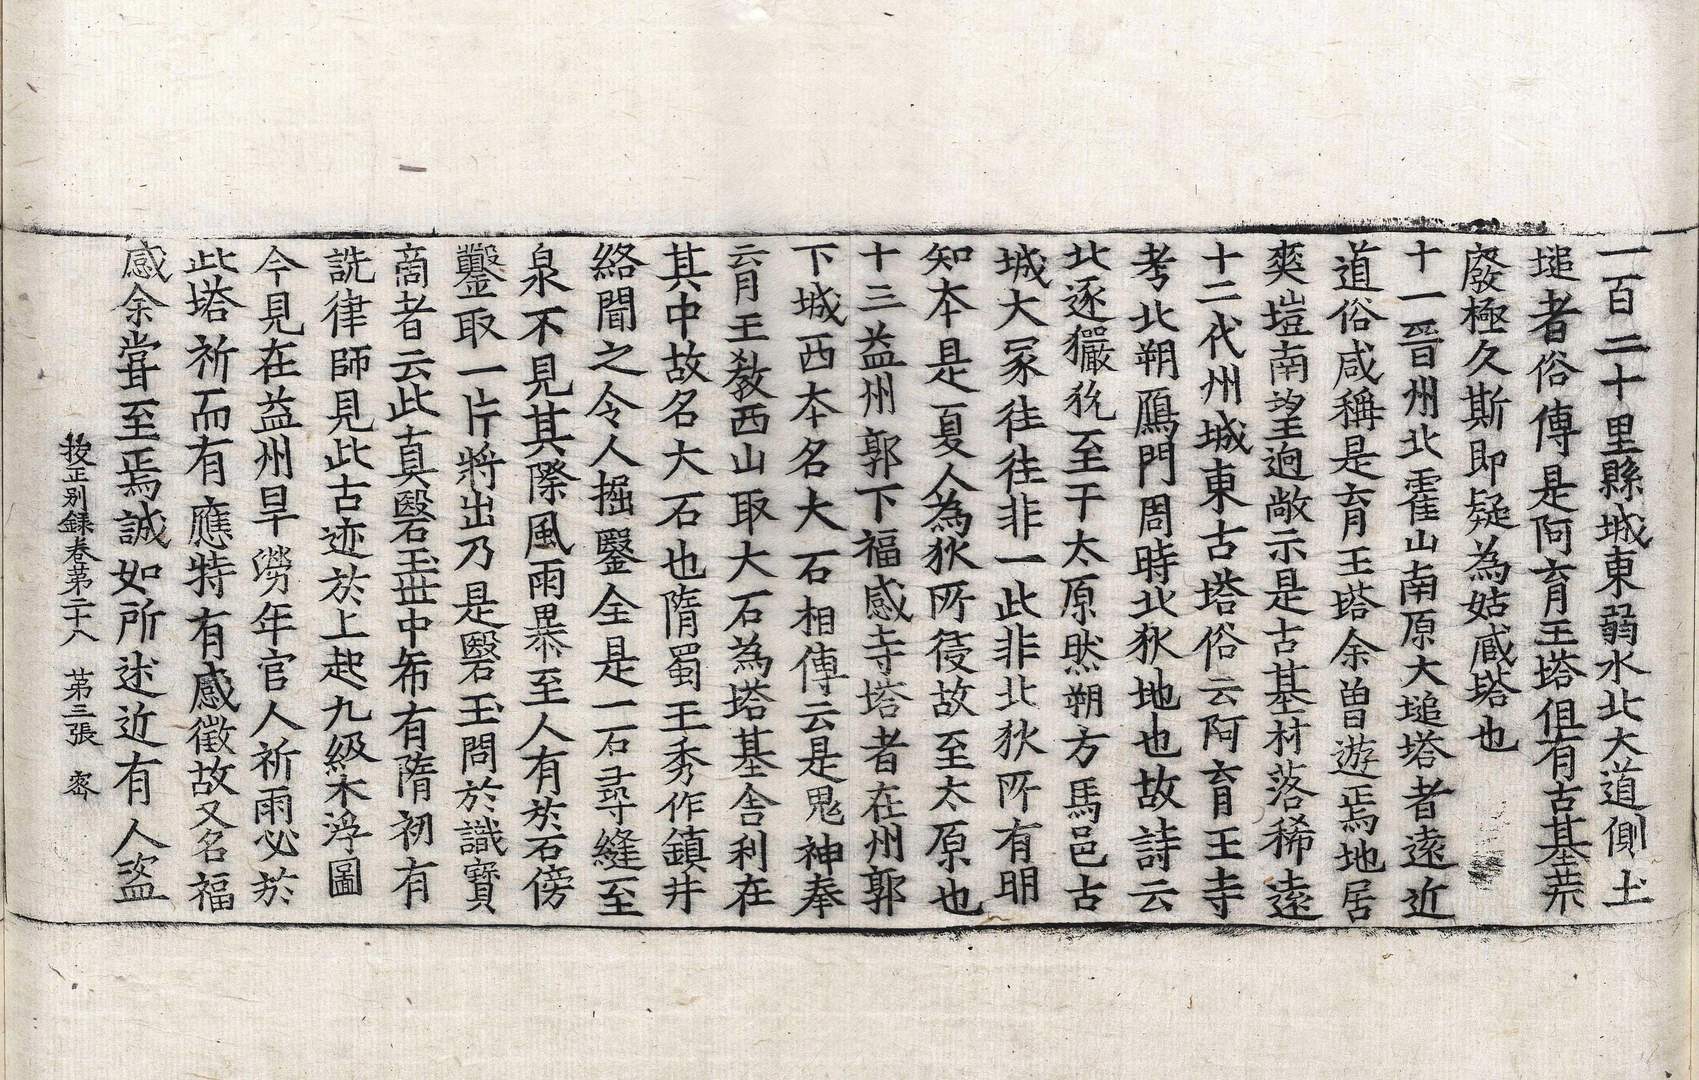 一百二十里縣城東弱水北大道側土
塠者俗傳是阿育王塔但有古基荒
廢極久斯即疑為姑臧塔也
十一晉州北霍山南原大塠塔者遠近
道俗咸稱是育王塔余曾遊焉地居
爽塏南望迥敞示是古基材落稀遠
十二代州城東古塔俗云阿育王寺
考北朔鴈門周時北狄地也故詩云
北逐玁狁至于太原然朔方馬邑古
城大冢往往非一此非北狄所有明
知本是夏人為狄所侵故至太原也
十三益州郭下福感寺塔者在州郭
下城西本名大石相傳云是鬼神奉
育王教西山取大石為塔基舍利在
其中故名大石也隋蜀王秀作鎮井
絡聞之令人掘鑿全是一石尋縫至
泉不見其際風雨暴至人有於石傍
鑿取一片將出乃是瑿玉問於識寶
商者云此真瑿玉世中希有隋初有
詵律師見此古迹於上起九級木浮圖
今見在益州旱澇年官人祈雨必於
此塔祈而有應特有感徵故又名福
感余嘗至焉誠如所述近有人盜
挍正別錄卷第二十八 第三張 密